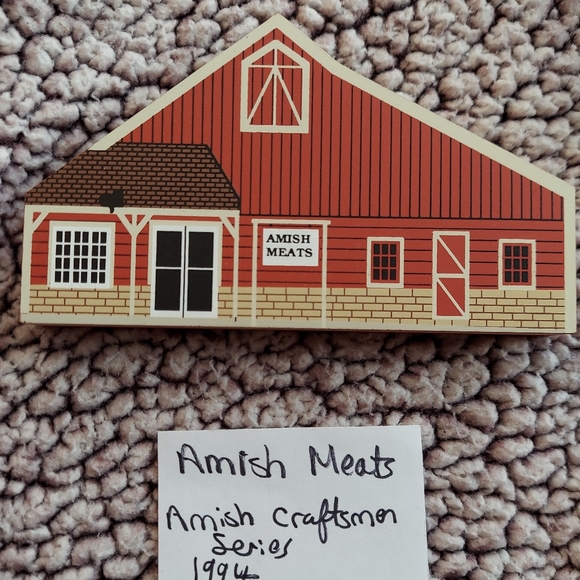 AMISH
MEATS
Amish Meats
Amish Craftsmen
Series
1994